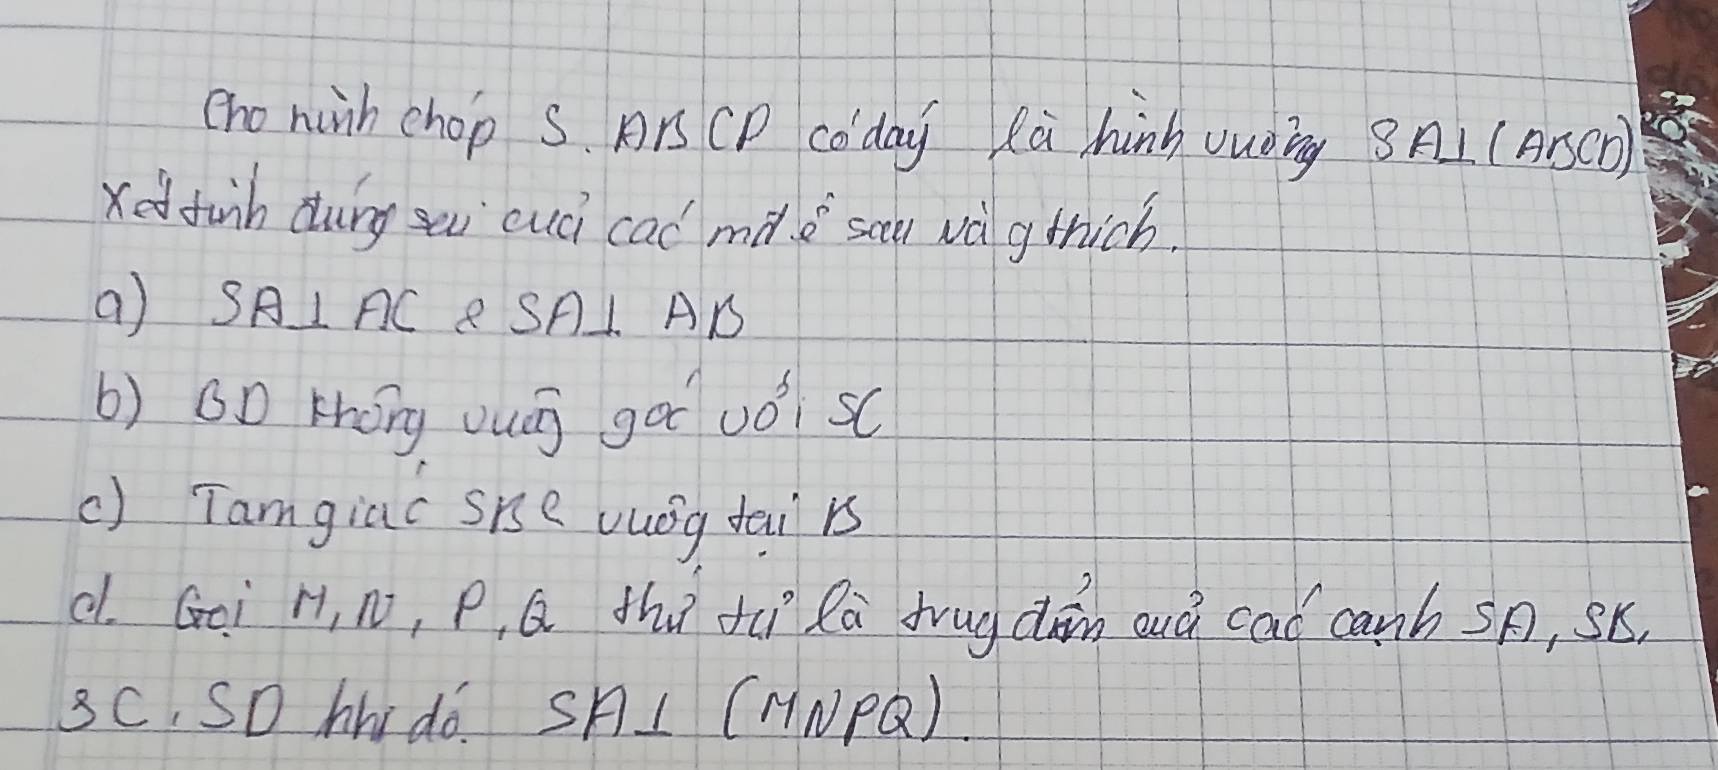 Cho hình chóp S.ABCD có đáy là hình vuông SA⊥(ABCD)
Xét tính đúng sai của các mđề sau và gthích.
a) SA⊥AC & SA⊥AB
b) BD không vuông góc với SC
c) Tam giác SBC vuông tại B
d. Gọi M, N, P, Q thứ tự là trug điểm của các cạnh SA, SB,
SC, SD khi đó. SA⊥ (MNPQ).